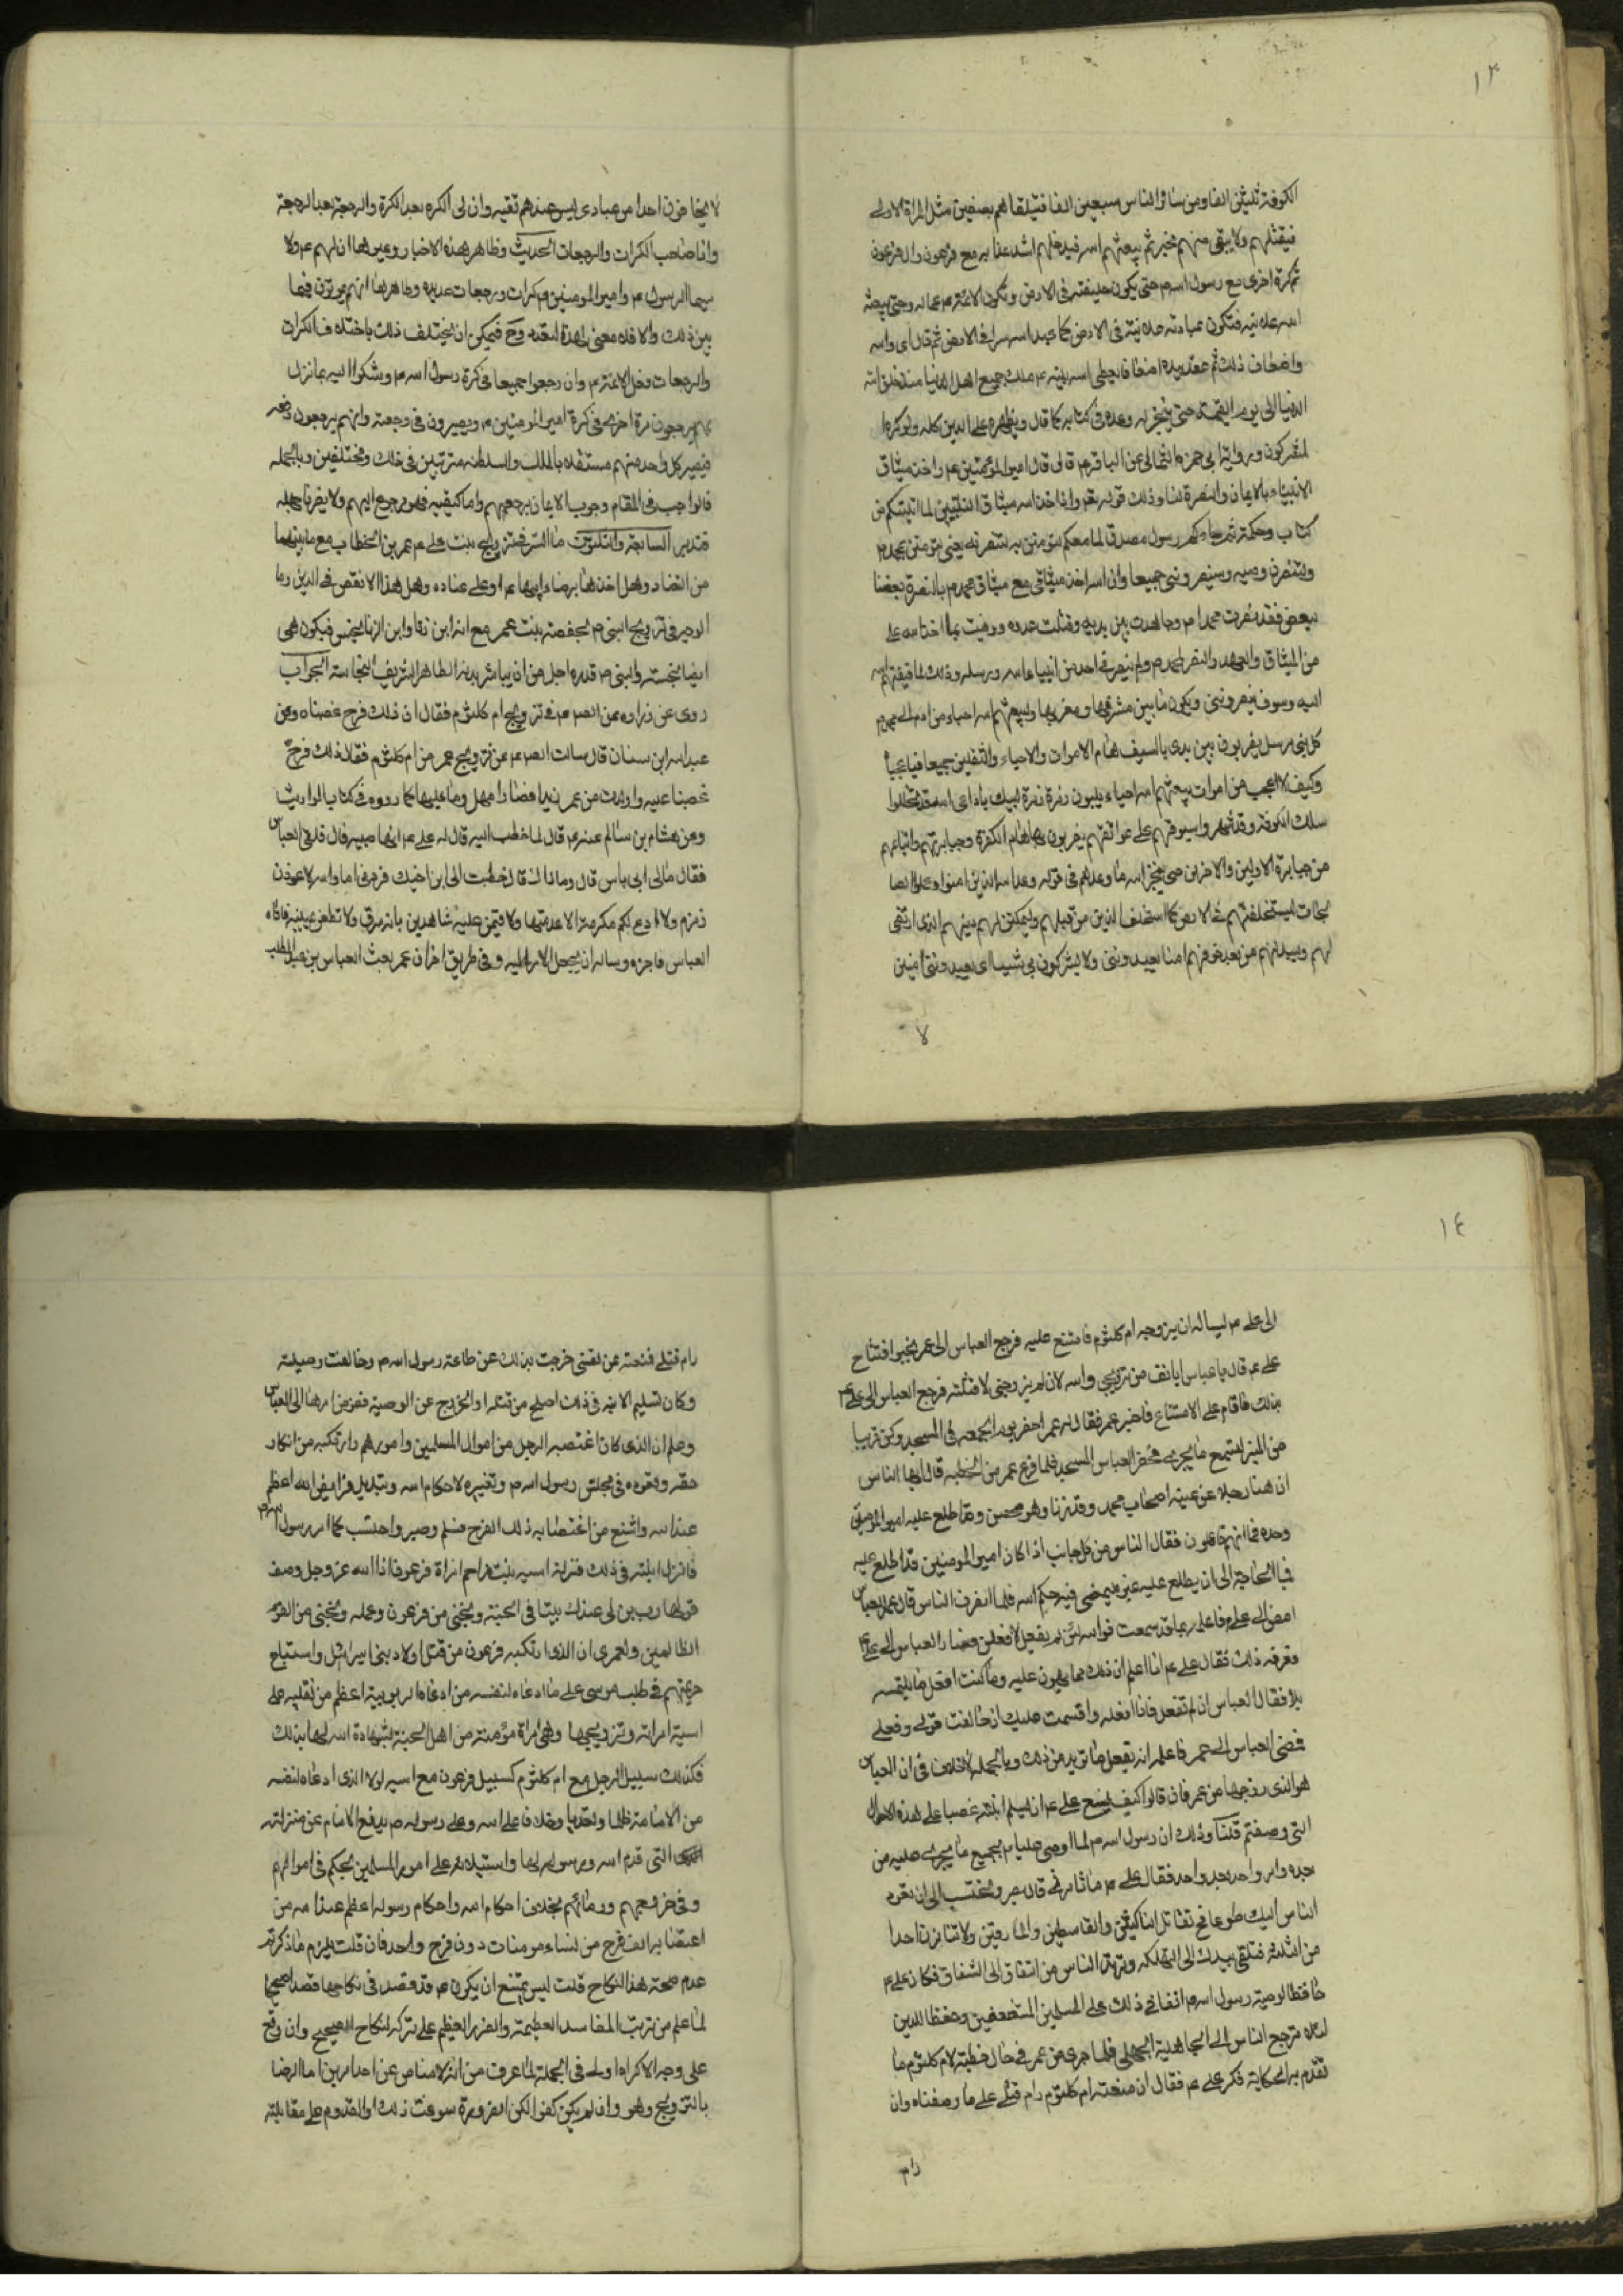 ١٣
الكوفة ثلثين الفا ومن سائر الناس سبعين الفا فتيلقاهم بصفين مثل المرة الاولى
فيقتلهم ولا يبقى منهم مخبر ثم يبعثهم الله فيدخلهم اشد عذابه مع فرعون وال فرعون
ثم كرة اخرى مع رسول الله ص حتى يكون خليفته فى الارض ويكون الائمة ع عماله وحتى يبعثه
الله علانيه فتكون عبادته علانية فى الارض كما عبد الله سرا فى الارض ثم قال اى والله
واضعاف ذلك ثم عقد بيده اضعافا يعطى الله نبيه ص ملك جميع اهل الدنيا منذ خلق الله
الدنيا الى يوم القيمة حتى ينجز له وعده فى كتابه كما قال ويظهره على الدين كله ولو كره
المشركون وروايه ابى حمزه الثمالى عن الباقر ع قال قال امير المؤمنين ع واخذ ميثاق
الانبياء بالايمان والنصرة لنا وذلك قوله تعو واذ اخذ الله ميثاق النبيين لما اتيتكم من
كتاب وحكمة ثم جاءكم رسول مصدق لما معكم لتؤمنن به ولتنصرنه يعنى لتؤمنن بمحمد ص
ولتنصرن وصيه وسينصرونى جميعا وان الله اخذ ميثاقى مع ميثاق محمد ص بالنصرة بعضنا
لبعض فقد نصرت محمدا ص وجاهدت بين يديه وقتلت عدوه ووفيت بما اخذ الله على
من الميثاق والعهد والنصر لمحمد ص ولم ينصرنى احد من انبياء الله ورسله وذلك لما قبضهم الله
اليه وسوف ينصروننى ويكون ما بين مشرقها ومغربها وليبعثهم الله احياء من ادم الى محمد ص
كل نبى مرسل يضربون بين يدى بالسيف هام الاموات والاحياء والثقلين جميعا فيا عجبا
وكيف لا اعجب من اموات يبعثهم الله احياء يلبون زمرة زمرة لبيك يا داعى الله قد تخللوا
سكك الكوفة وقد شهروا سيوفهم على عواتقهم يضربون بها هام الكفرة وجبابرتهم واتباعهم
من جبابرة الاولين والاخرين حتى ينجز الله ما وعدهم فى قوله وعد الله الذين امنوا وعملوا الصا
لحات ليستخلفنهم فى الارض كما استخلف الذين من قبلهم وليمكنن لهم دينهم الذى ارتضى
لهم وليبدلنهم من بعد خوفهم امنا يعبدوننى ولا يشركون بى شيئا اى يعبدوننى امنين
لا
لا يخافون احدا من عبادى ليس عندهم تقيه وان لى الكره بعد الكرة والرجعة بعد الرجعة
وانا صاحب الكرات والرجعات الحديث وظاهر هذه الاخبار وغيرها ان لهم ع ولا
سيما الرسول ص وامير المومنين ع كرات ورجعات عديده وظاهرها انهم يموتون فيما
بين ذلك والا فلا معنى لهذا التعدد وح فيمكن ان يختلف ذلك باختلاف الكرات
والرجعات فلعل الائمة ع وان رجعوا جميعا فى كرة رسول الله ص ويشكوا اليه ما نزل
بهم يرجعون مرة اخرى فى كرة امير المومنين ع ويصيرون فى رجعته وانهم يرجعون دفعه
فيصير كل واحد منهم مستقلا بالملك والسلطنه مترتبين فى ذلك ومختلفين وبالجمله
فالواجب فى المقام وجوب الايمان برجعتهم واما كيفيه فهو مرجوع اليهم ولا يضرنا جهله
فتدبر السابعة والثلثون ما السر فى تزويج بنت على ع عمر بن الخطاب مع ما بينهما
من التضاد وهل اخذها برضاء ابيها ع او على عناده وهل هذا الا نقص فى الدين وما
الوجه فى تزويج النبى ص بحفصة بنت عمر مع انه ابن زنا وابن الزنا نجس فيكون هى
ايضا نجسة والنبى ص قدره اجل من ان يباشر بدنه الطاهر الشريف النجاسة الجواب
روى عن زراره عن الصادق ع فى تزويج ام كلثوم فقال ان ذلك فرج غصبناه وعن
عبد الله ابن سنان قال سالت الصه ع عن تزويج عمر من ام كلثوم فقال ذلك فرج
غصبنا عليه واولدت من عمر زيدا
وعن هشام بن سالم عنه ع قال لما خطب اليه قال له على ع انها صبيه قال فلقى العباس
فقال مالى ابى باس قال وما ذاك قال خطبت الى ابن اخيك فردنى اما والله لاعورن
زمزم ولا ادع لكم مكرمة الا هدمتها ولاقيمن عليه شاهدين بانه سرق ولا قطعن يمينه فاتاه
العباس فاخبره وساله ان يجعل الامر اليه وفى طريق اخر ان عمر بعث العباس بن عبد المطلب
١٤
الى على ع ليساله ان يزوجه ام كلثوم فامتنع عليه فرجع العباس الى عمر يخبره امتناع
على ع قال يا عباس ايانف من تزويجى والله لان لم يزوجنى لاقتلنه فرجع العباس الى على ع
بذلك فاقام على الامتناع فاخبر عمر فقال له عمر احضر يوم الجمعه فى المسجد وكن قريبا
من المنبر لتسمع ما يجرى فحضر العباس المسجد فلما فرغ عمر من الخطبه قال ايها الناس
ان هنا رجلا من عليه اصحاب محمد وقد زنا وهو محصن وقد اطلع عليه امير المومنين
وحده فما انتم قائلون فقال الناس من كل جانب اذا كان امير المومنين قد اطلع عليه
فما الحاجة الى ان يطلع عليه غيره ليمضى فيه حكم الله فلما انصرف الناس قال عمر للعباس
امض الى على فاعلمه بما قد سمعت فوالله لئن لم يفعل لافعلن فصار العباس الى على ع
وعرفه ذلك فقال على ع انا اعلم ان ذلك مما يهون عليه وما كنت افعل ما يلتمسه
بلا فقال العباس ان لم تفعل فانا افعله واقسمت عليك ان خالفت قولى وفعلى
فمضى العباس الى عمر فاعلمه انه يفعل ما تريد من ذلك وبالجمله لا خلاف فى ان العباس
هو الذى زوجها من عمر فان قالوا كيف يصنع على ع ان يسلم ابنته غصبا على هذه الاحوال
التى وصفتم قلنا وذلك ان رسول الله ص لما اوصى عليا ع بجميع ما يجرى عليه من
بعده وامر واحد بعد واحد فقال على ع ما تامرنى قال صبر وتحتسب الى ان تعود
الناس اليك طوعا فح تقاتل الناكثين والقاسطين والمارقين ولا تنابزن احدا
من الثلثه فتلقى بيدك الى التهلكه ويرتد الناس من النفاق الى الشقاق فكان على ع
حافظا لوصية رسول الله ص اتقاء فى ذلك على المسلمين المستضعفين وحفظا للدين
لئلا يرجع الناس الى الجاهلية الجهلى فلما جرى من عمر فى حال خطبته لام كلثوم ما
تقدم به الحكاية فكر على ع فقال ان منعته ام كلثوم رام قتلى على ما وصفناه وان
رام
رام قتلى فمنعته عن نفسى خرجت بذلك عن طاعة رسول الله ص وخالفت وصيته
وكان تسليم الابنه فى ذلك اصلح من قتله او الخروج عن الوصية ففوض امرها الى العباس
وعلم ان الذى كان اغتصبه الرجل من اموال المسلمين وامورهم وارتكبه من انكار
حقه وقعوده فى مجلس رسول الله ص وتغييره لاحكام الله وتبديل فرايض الله اعظم
عند الله واشنع من اغتصابه ذلك الفرج فسلم وصبر واحتسب كما امر رسول الله ص
فانزل ابنته فى ذلك منزلة اسيه بنت مزاحم امراة فرعون اذ الله عز وجل وصف
قولها رب ابن لى عندك بيتا فى الجنة ونجنى من فرعون وعمله ونجنى من القوم
الظالمين ولعمرى ان الذى ارتكبه فرعون من قتل اولاد بنى اسرائيل واستباح
حريمهم فى طلب موسى على ما ادعاه لنفسه من ادعاه الربوبية اعظم من تغلبه على
اسية امراته وتزويجها وهى امراة مؤمنة من اهل الجنة بشهادة الله لها بذلك
فكذلك سبيل الرجل مع ام كلثوم كسبيل فرعون مع اسيه لولا الذى ادعاه لنفسه
من الامامة ظلما وتعديا وخلافا على الله وعلى رسوله ص بدفع الامام عن منزلته
التى قدم الله ورسوله لها واستيلائه على امور المسلمين يحكم فى اموالهم
وفى فروجهم ودمائهم بخلاف احكام الله واحكام رسوله اعظم عند الله من
اغتصابه الف فرج من نساء مومنات دون فرج واحد فان قلت يلزم ما ذكرتم
عدم صحة هذا النكاح قلت ليس يمتنع ان يكون ع قد قصد فى نكاحها قصدا صحيحا
لما علم من ترتب المفاسد العظيمة والضرر العظيم على تركه النكاح الصحيح وان وقع
على وجه الاكراه اولى فى الجملة لما عرفت من انه لا مناص عن احد امرين اما الرضا
بالتزويج وهو وان لم يكن كفوا لكن الضرورة سوغت ذلك او القدوم على مقابلته